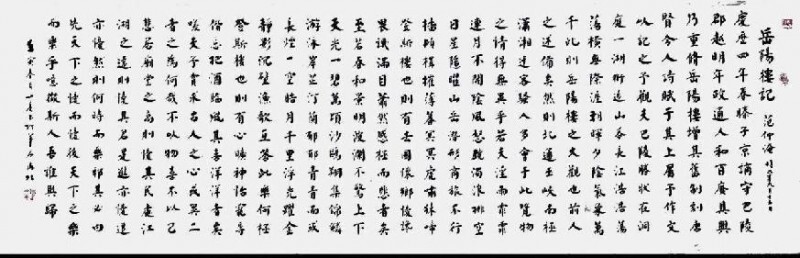 岳陽樓記 范仲淹
慶歷四年春滕子京謫守巴陵
郡越明年政通人和百廢具興
乃重修岳陽樓增其舊制刻唐
賢今人詩賦于其上屬予作文
以記之予觀夫巴陵勝狀在洞
庭一湖銜遠山吞長江浩浩蕩
蕩橫無際涯朝暉夕陰氣象萬
千此則岳陽樓之大觀也前人
之述備矣然則北通巫峽南極
瀟湘遷客騷人多會于此覽物
之情得無異乎若夫淫雨霏霏
連月不開陰風怒號濁浪排空
日星隱曜山岳潛形商旅不行
檣傾楫摧薄暮冥冥虎嘯猿啼
登斯樓也則有去國懷鄉憂讒
畏譏滿目蕭然感極而悲者矣
至若春和景明波瀾不驚上下
天光一碧萬頃沙鷗翔集錦鱗
游泳岸芷汀蘭郁郁青青而或
長煙一空皓月千里浮光耀金
靜影沉璧漁歌互答此樂何極
登斯樓也則有心曠神怡寵辱
偕忘把酒臨風其喜洋洋者矣
嗟夫予嘗求古仁人之心或異二
者之為何哉不以物喜不以己
悲居廟堂之高則憂其民處江
湖之遠則憂其君是進亦憂退
亦憂然則何時而樂耶其必曰
先天下之憂而憂後天下之樂
而樂乎噫微斯人吾誰與歸